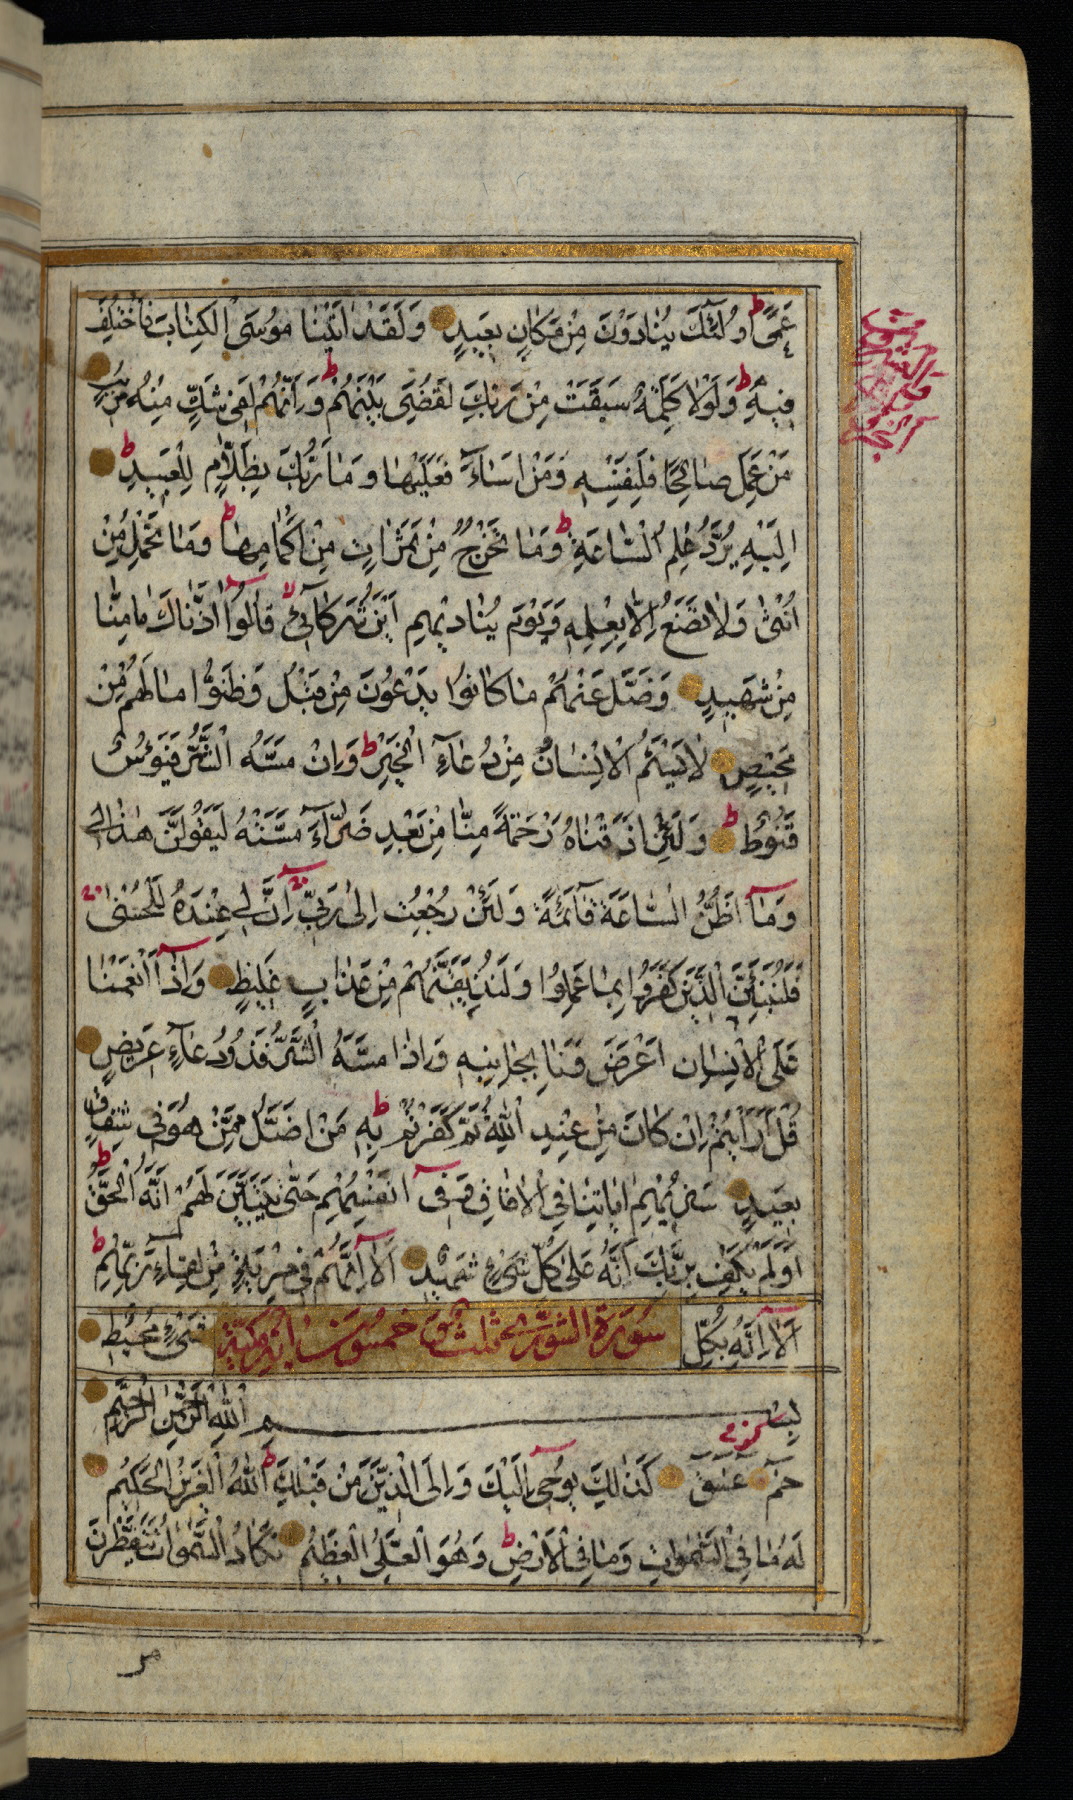 عَمًى أُولٰئِكَ يُنَادَوْنَ مِنْ مَكَانٍ بَعِيدٍ وَلَقَدْ اٰتَيْنَا مُوسَى الْكِتَابَ فَاخْتُلِفَ
فِيهِ ط وَلَوْلَا كَلِمَةٌ سَبَقَتْ مِنْ رَبِّكَ لَقُضِيَ بَيْنَهُمْ ط وَإِنَّهُمْ لَفِي شَكٍّ مِنْهُ مُرِيبٍ
مَنْ عَمِلَ صَالِحًا فَلِنَفْسِهِ وَمَنْ اَسَاءَ فَعَلَيْهَا وَمَا رَبُّكَ بِظَلَّامٍ لِلْعَبِيدِ ط
اِلَيْهِ يُرَدُّ عِلْمُ السَّاعَةِ ط وَمَا تَخْرُجُ مِنْ ثَمَرَاتٍ مِنْ اَكْمَامِهَا ط وَمَا تَحْمِلُ مِنْ
اُنْثٰى وَلَا تَضَعُ اِلَّا بِعِلْمِهِ وَيَوْمَ يُنَادِيهِمْ اَيْنَ شُرَكَآئِي قَالُوا اٰذَنَّاكَ مَا مِنَّا
مِنْ شَهِيدٍ وَضَلَّ عَنْهُمْ مَا كَانُوا يَدْعُونَ مِنْ قَبْلُ وَظَنُّوا مَا لَهُمْ مِنْ
مَحِيصٍ لَا يَسْئَمُ الْاِنْسَانُ مِنْ دُعَآءِ الْخَيْرِ ط وَاِنْ مَسَّهُ الشَّرُّ فَيَؤُسٌ
قَنُوطٌ ط وَلَئِنْ اَذَقْنَاهُ رَحْمَةً مِنَّا مِنْ بَعْدِ ضَرَّآءَ مَسَّتْهُ لَيَقُولَنَّ هٰذَا لِي
وَمَآ اَظُنُّ السَّاعَةَ قَآئِمَةً وَلَئِنْ رُجِعْتُ اِلٰى رَبِّي اِنَّ لِي عِنْدَهُ لَلْحُسْنٰى
فَلَنُنَبِّئَنَّ الَّذِينَ كَفَرُوا بِمَا عَمِلُوا وَلَنُذِيقَنَّهُمْ مِنْ عَذَابٍ غَلِيظٍ وَاِذَآ اَنْعَمْنَا
عَلَى الْاِنْسَانِ اَعْرَضَ وَنَأٰى بِجَانِبِهِ وَاِذَا مَسَّهُ الشَّرُّ فَذُو دُعَآءٍ عَرِيضٍ
قُلْ اَرَاَيْتُمْ اِنْ كَانَ مِنْ عِنْدِ اللّٰهِ ثُمَّ كَفَرْتُمْ بِهِ ط مَنْ اَضَلُّ مِمَّنْ هُوَ فِي شِقَاقٍ
بَعِيدٍ سَنُرِيهِمْ اٰيَاتِنَا فِي الْاٰفَاقِ وَفِيٓ اَنْفُسِهِمْ حَتّٰى يَتَبَيَّنَ لَهُمْ اَنَّهُ الْحَقُّ ط
اَوَلَمْ يَكْفِ بِرَبِّكَ اَنَّهُ عَلٰى كُلِّ شَيْءٍ شَهِيدٌ اَلَآ اِنَّهُمْ فِي مِرْيَةٍ مِنْ لِقَآءِ رَبِّهِمْ ط
اَلَآ اِنَّهُ بِكُلِّ شَيْءٍ مُحِيطٌ
سورة الشورى ثلث و خمسون اية مكية
بِسْمِ اللّٰهِ الرَّحْمٰنِ الرَّحِيمِ
حٰمٓ عٓسٓقٓ كَذٰلِكَ يُوحِيٓ اِلَيْكَ وَاِلَى الَّذِينَ مِنْ قَبْلِكَ ط اللّٰهُ الْعَزِيزُ الْحَكِيمُ
لَهُ مَا فِي السَّمٰوَاتِ وَمَا فِي الْاَرْضِ ط وَهُوَ الْعَلِيُّ الْعَظِيمُ تَكَادُ السَّمٰوَاتُ يَتَفَطَّرْنَ